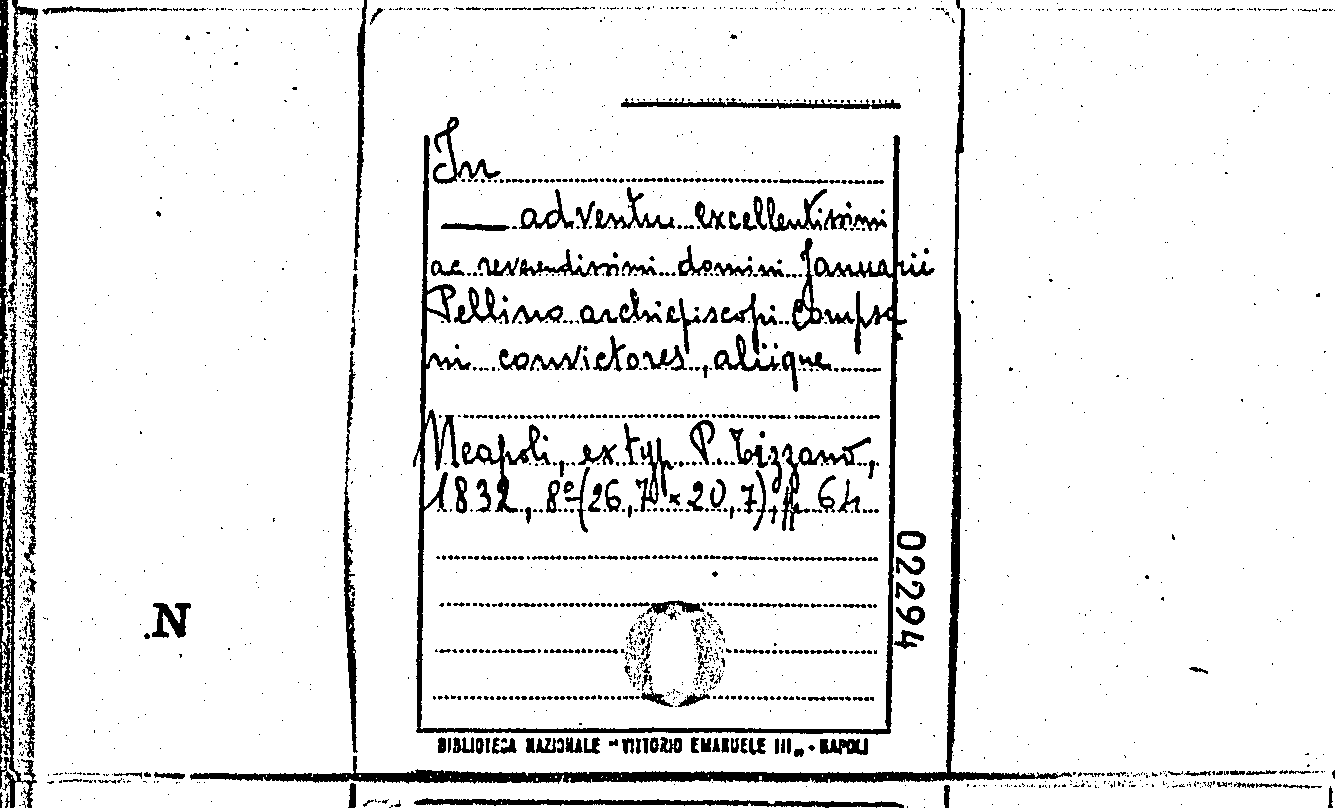 In
adventu excellentissimi
ac reverendissimi domini Januarii
Pellino archiepiscopi Compsa
ni convictores, aliique
Neapoli, ex typ. P. Tizzano,
1832, 8º (26,7 × 20,7), pp. 64
02294
.N
BIBLIOTECA NAZIONALE "VITTORIO EMANUELE III„ - NAPOLI